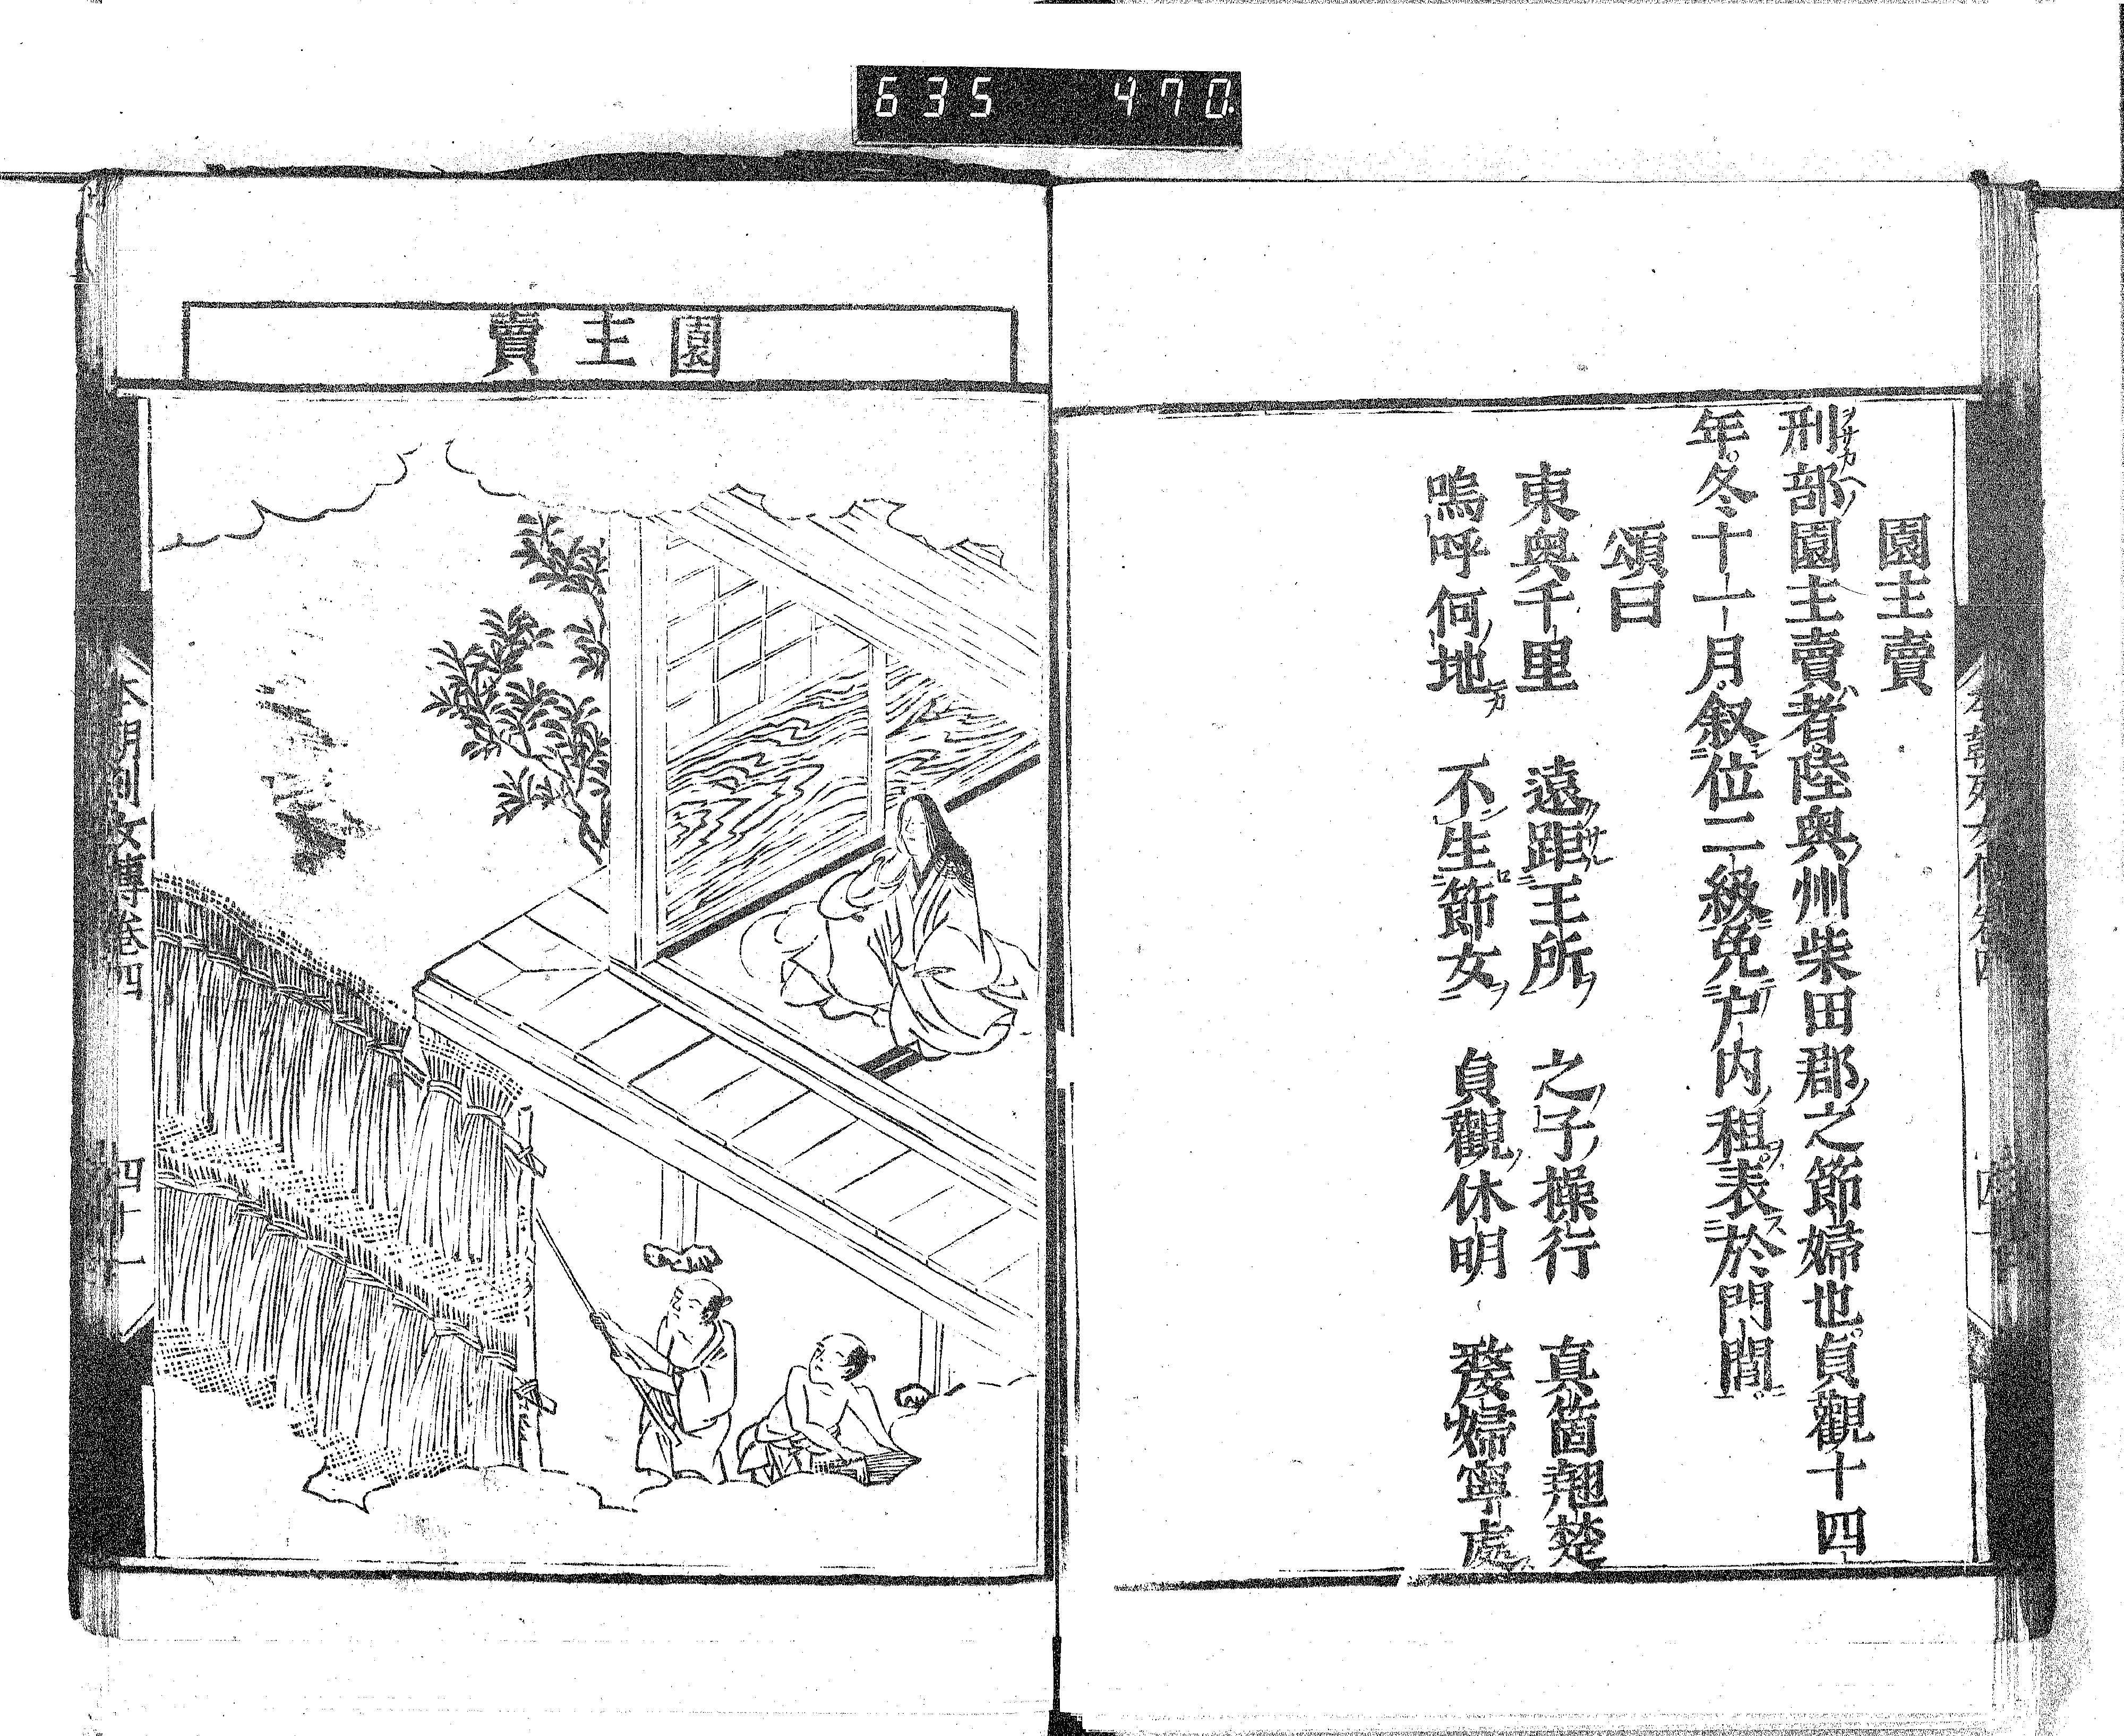 635 470
園主賣
刑部園主賣者陸奥州柴田郡之節婦也貞觀十四
年冬十一月叙位二級免户内租表於門閭
頌曰
東奥千里 遠距王所 之子操行 真箇翹楚
嗚呼何地 不生節女 貞觀休明 嫠婦寧處
園主賣
本朝列女傳卷四 四十一